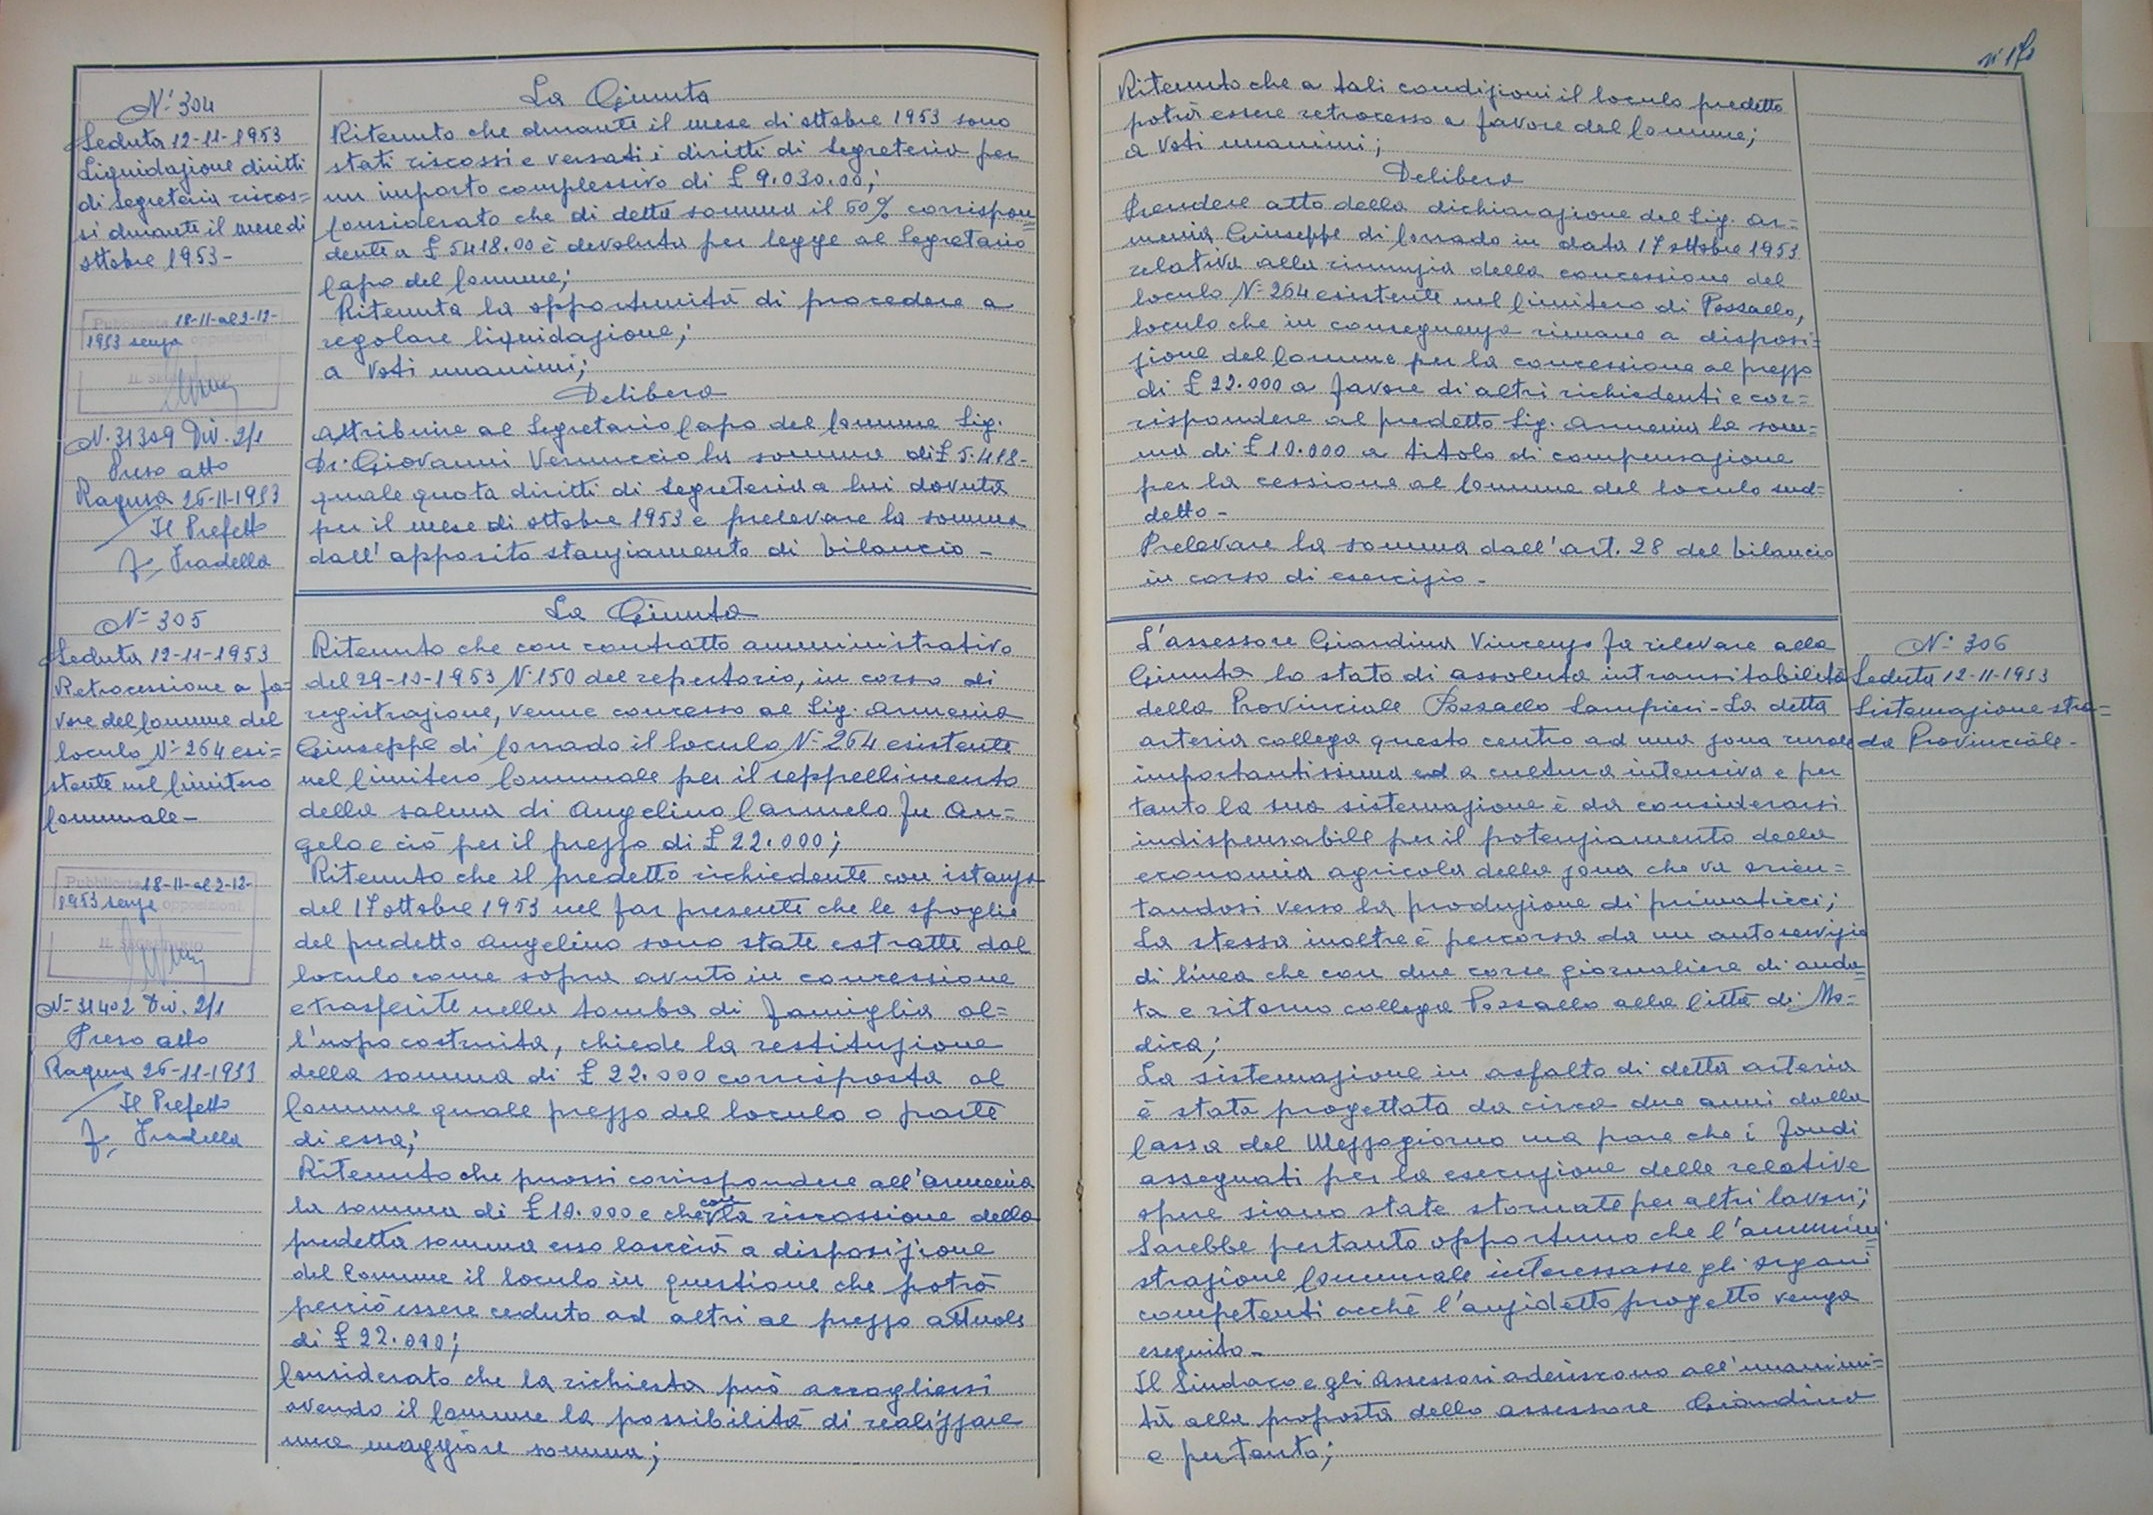 N. 304
Seduta 12-11-1953
Liquidazione diritti
di Segreteria riscos=
si durante il mese di
ottobre 1953 -
Pubblicata 18-11-al 2-12-
1953 senza opposizioni
IL SEGRETARIO
N. 31309 Div. 2/1
Preso atto
Ragusa 26-11-1953
Il Prefetto
f. Fradella
La Giunta
Ritenuto che durante il mese di ottobre 1953 sono
stati riscossi e versati i diritti di Segreteria per
un importo complessivo di £ 9.030.00;
Considerato che di detta somma il 60% corrispon=
dente a £ 5418.00 è devoluta per legge al Segretario
Capo del Comune;
Ritenuta la opportunità di procedere a
regolare liquidazione;
a voti unanimi;
Delibera
Attribuire al Segretario Capo del Comune Sig.
Dr. Giovanni Vernuccio la somma di £ 5.418-
quale quota diritti di Segreteria a lui dovuta
per il mese di ottobre 1953 e prelevare la somma
dall'apposito stanziamento di bilancio -
N= 305
Seduta 12-11-1953
Retrocessione a fa=
vore del Comune del
loculo N= 264 esi=
stente nel Cimitero
Comunale -
Pubblicata 18-11-al 2-12-
1953 senza opposizioni
IL SEGRETARIO
N= 31402 Div. 2/1
Preso atto
Ragusa 26-11-1953
Il Prefetto
f. Fradella
La Giunta
Ritenuto che con contratto amministrativo
del 29-10-1953 N. 150 del repertorio, in corso di
registrazione, venne concesso al Sig. Armenia
Giuseppe di Corrado il loculo N= 264 esistente
nel Cimitero Comunale per il seppellimento
della salma di Angelino Carmelo fu An=
gelo e ciò per il prezzo di £ 22.000;
Ritenuto che il predetto richiedente con istanza
del 17 ottobre 1953 nel far presente che le spoglie
del predetto Angelino sono state estratte dal
loculo come sopra avuto in concessione
e trasferite nella tomba di famiglia al=
l'uopo costruita, chiede la restituzione
della somma di £ 22.000 corrisposta al
Comune quale prezzo del loculo o parte
di essa;
Ritenuto che puossi corrispondere all'Armenia
la somma di £ 10.000 e che con la riscossione della
predetta somma esso lascerà a disposizione
del Comune il loculo in questione che potrà
perciò essere ceduto ad altri al prezzo attuale
di £ 22.000;
Considerato che la richiesta può accogliersi
avendo il Comune la possibilità di realizzare
una maggiore somma;
Ritenuto che a tali condizioni il loculo predetto
potrà essere retrocesso a favore del Comune;
a voti unanimi;
Delibera
Prendere atto della dichiarazione del Sig. Ar=
menia Giuseppe di Corrado in data 17 ottobre 1953
relativa alla rinunzia della concessione del
loculo N= 264 esistente nel Cimitero di Pozzallo,
loculo che in conseguenza rimane a disposi=
zione del Comune per la concessione al prezzo
di £ 22.000 a favore di altri richiedenti e cor=
rispondere al predetto Sig. Armenia la som=
ma di £ 10.000 a titolo di compensazione
per la cessione al Comune del loculo sud=
detto -
Prelevare la somma dall'art. 28 del bilancio
in corso di esercizio -
L'assessore Giardina Vincenzo fa rilevare alla
Giunta lo stato di assoluta intransitabilità
della Provinciale Pozzallo Sampieri - La detta
arteria collega questo centro ad una zona rurale
importantissima ed a cultura intensiva e per
tanto la sua sistemazione è da considerarsi
indispensabile per il potenziamento della
economia agricola della zona che va orien=
tandosi verso la produzione di primaticci;
La stessa inoltre è percorsa da un autoservizio
di linea che con due corse giornaliere di anda=
ta e ritorno collega Pozzallo alla Città di Mo=
dica;
La sistemazione in asfalto di detta arteria
è stata progettata da circa due anni dalla
Cassa del Mezzogiorno ma pare che i fondi
assegnati per la esecuzione delle relative
opere siano state stornate per altri lavori;
Sarebbe pertanto opportuno che l'ammini=
strazione Comunale interessasse gli organi
competenti acchè l'anzidetto progetto venga
eseguito -
Il Sindaco e gli Assessori aderiscono all'unanimi=
tà alla proposta dello assessore Giardina
e pertanto;
N= 306
Seduta 12-11-1953
Sistemazione stra=
da Provinciale -